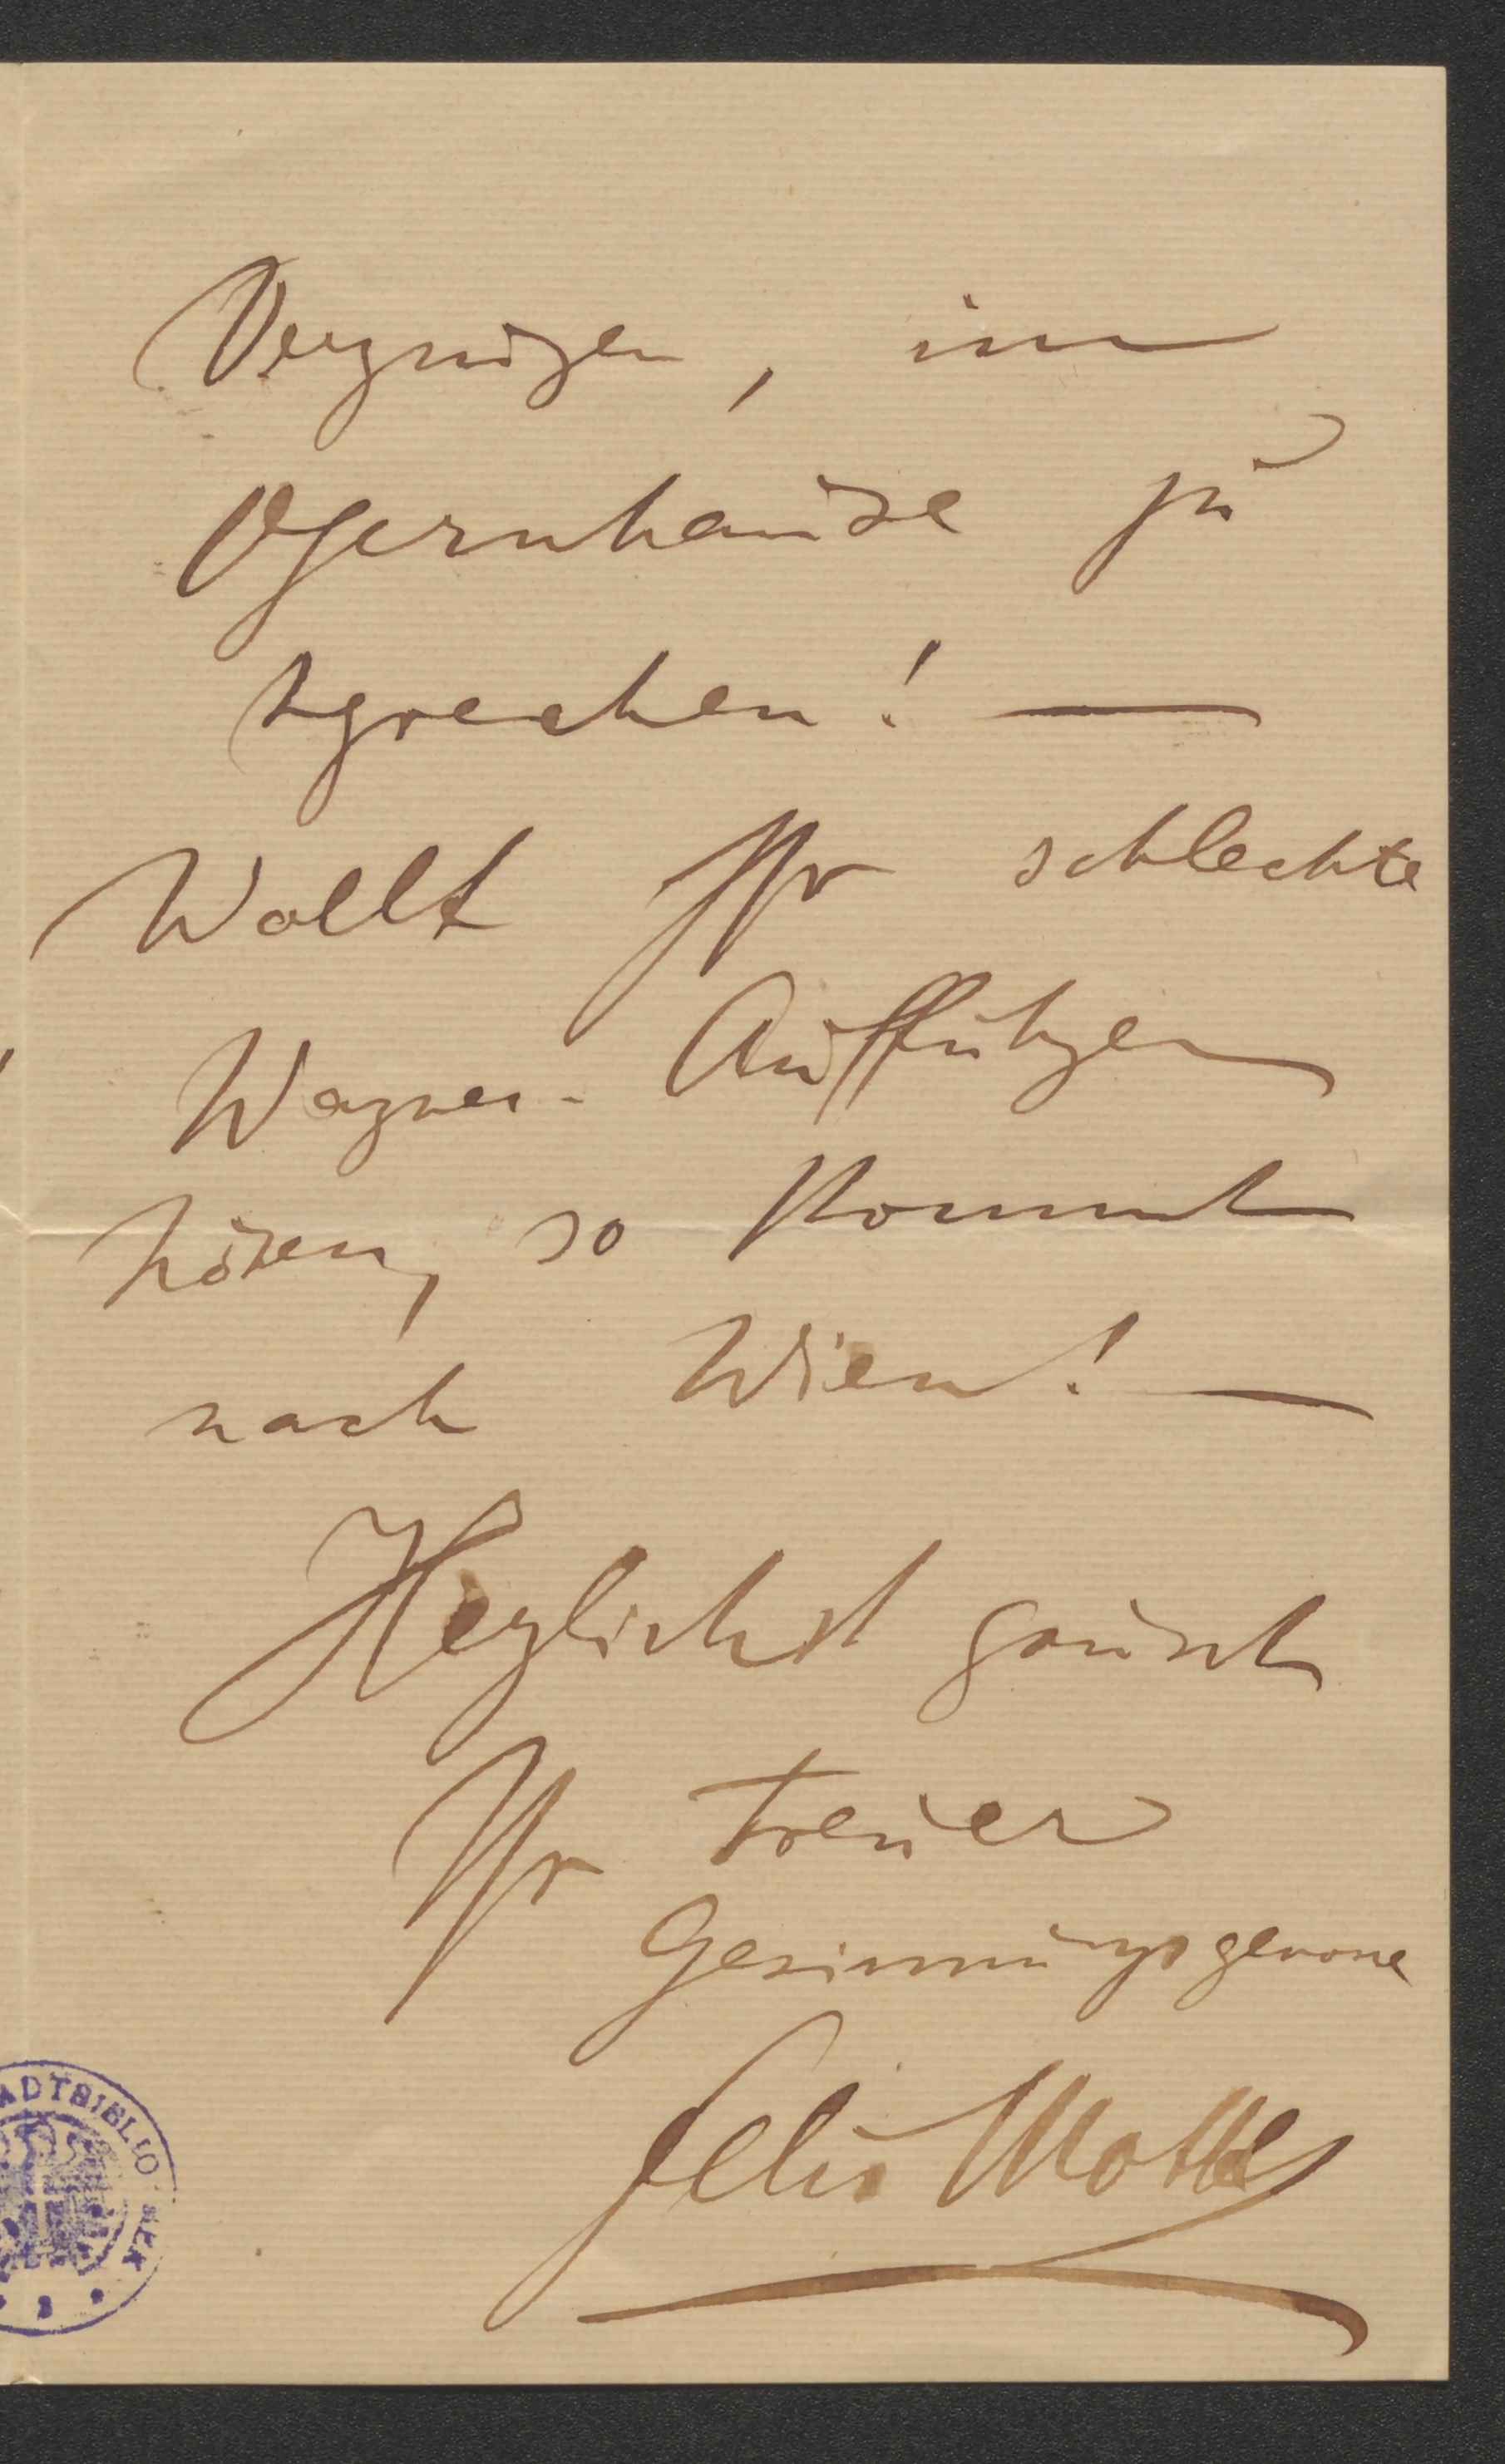 Vergnügen, im
Opernhause zu
sprechen! —
Wollt Ihr schlechte
Wagner-Aufführgen
hören, so kommt
nach Wien! —
Herzlichst grüsst
Ihr treuer
Gesinnungsgenosse
Felix Mottl
ADTBIBLIO EK